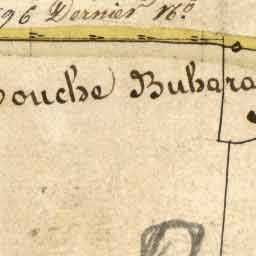 96 Dernier No
ouche Buhara